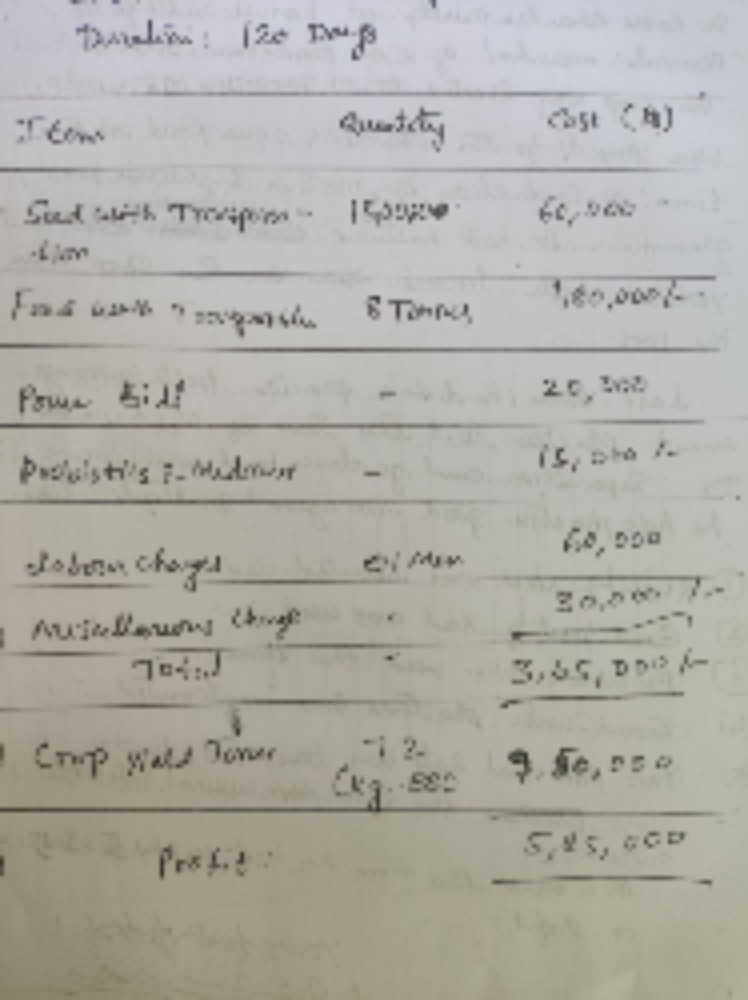 Duration: 120 Days
Item Quantity Cost (₹)
Seed with Transporta-
tion 60,000
Feed with 8 Tonnes 1,80,000/-
Power Bill - 20,000
Probiotics - 15,000/-
Labour Charges 01 Men 60,000
Miscellaneous Charge - 30,000/-
Total - 3,65,000/-
Crop Yield 9,50,000
(kg.
Profit: 5,85,000